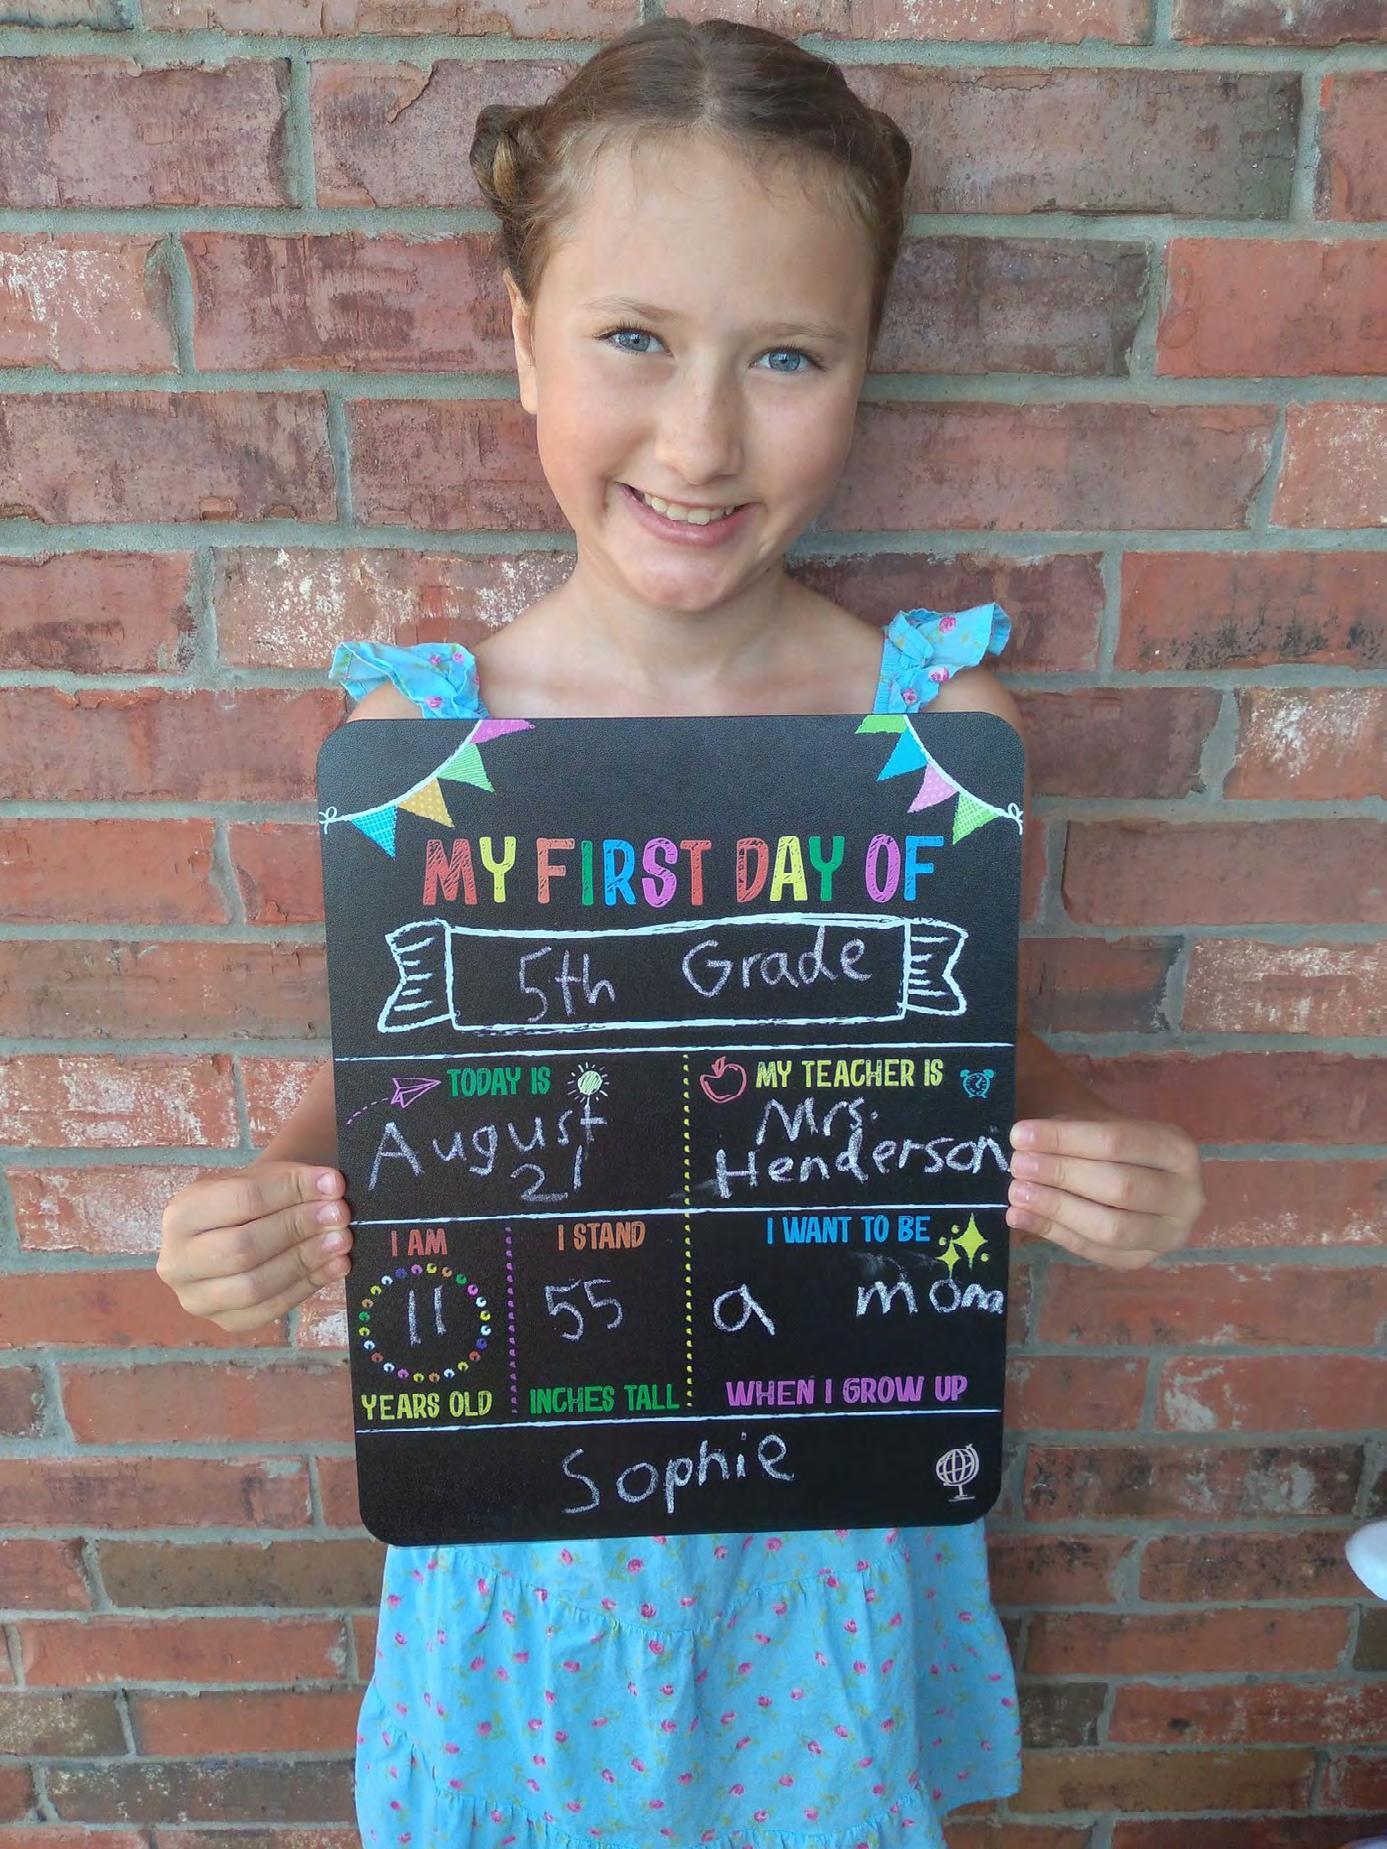 MY FIRST DAY OF
5th Grade
TODAY IS
August
21
MY TEACHER IS
Mrs.
Henderson
I AM
11
YEARS OLD
I STAND
55
INCHES TALL
I WANT TO BE
a mom
WHEN I GROW UP
Sophie